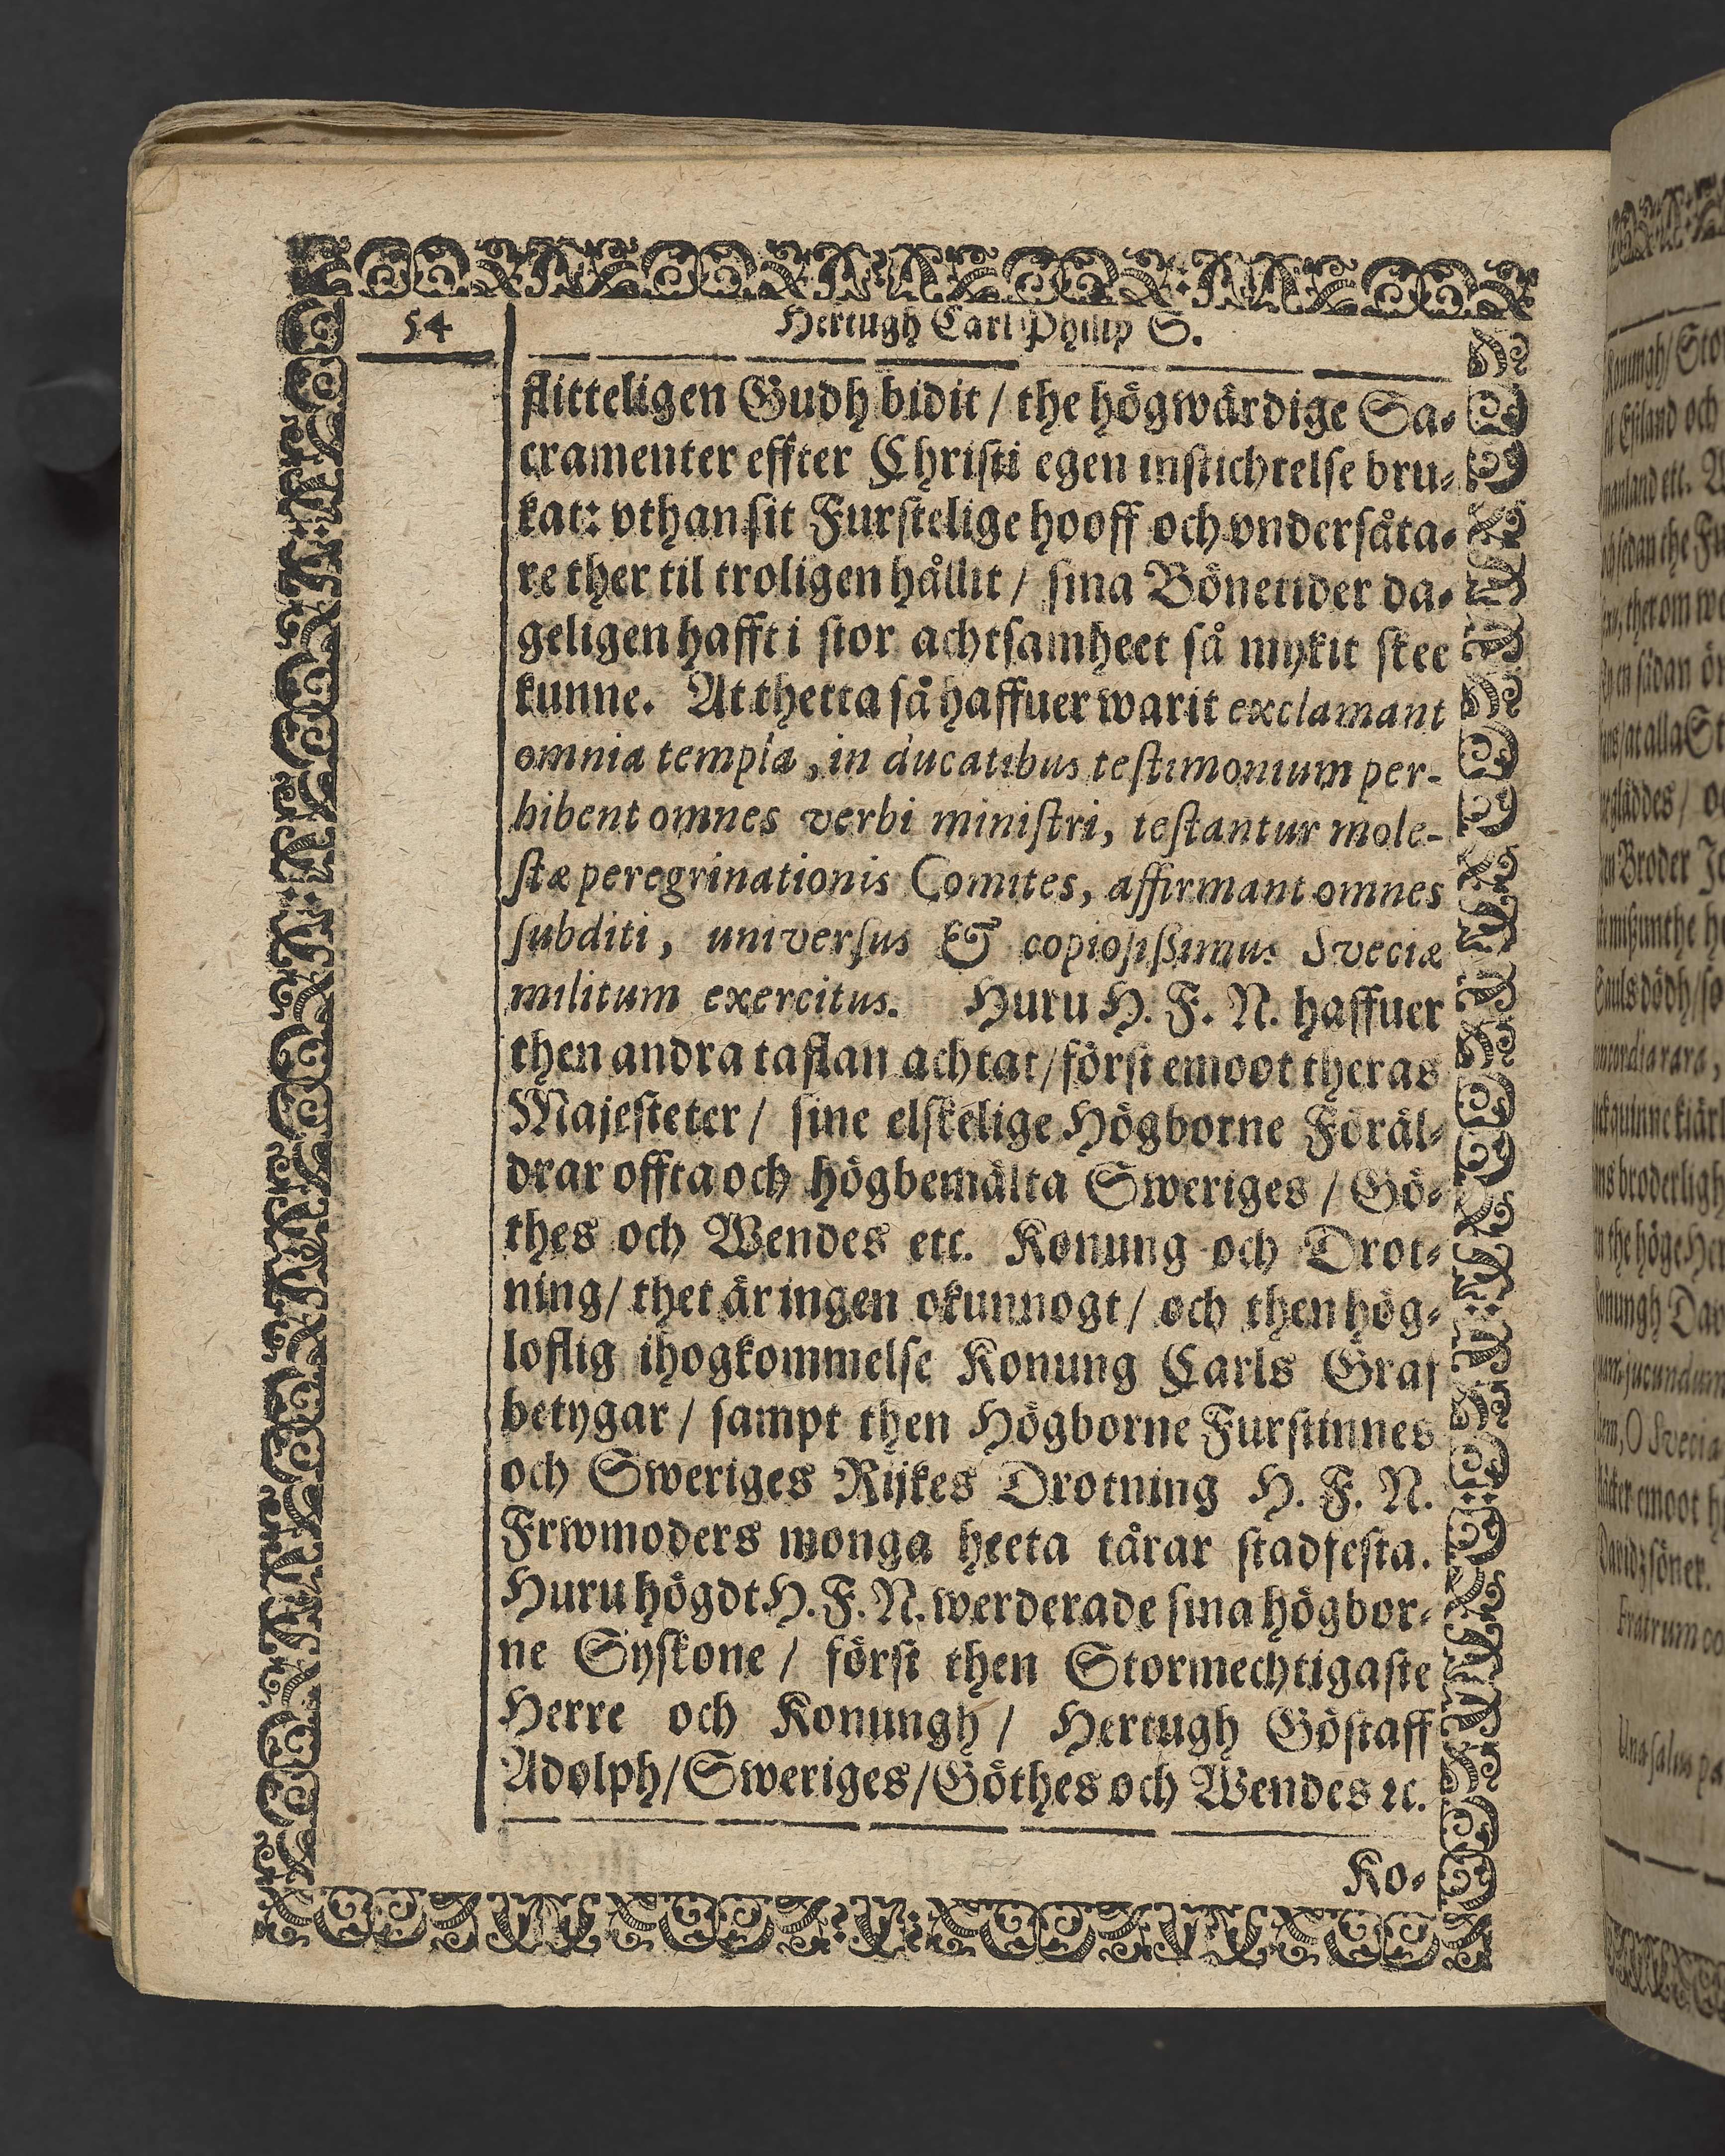 54
Hertugh Carl Philip S.
flitteligen Gudh bidit / the högwärdige Sa-
cramenter effter Christi egen instichtelse bru-
kat: vthan sit Furstelige hooff och vndersåta-
re ther til troligen hållit / sina Bönetider da-
geligen hafft i stor achtsamheet så mykit skee
kunne. At thetta så haffuer warit exclamant
omnia templa, in ducatibus testimonium per-
hibent omnes verbi ministri, testantur mole-
stæ peregrinationis Comites, affirmant omnes
subditi, universus & copiosissimus Sveciæ
militum exercitus. Huru H. F. N. haffuer
then andra taflan achtat / först emoot theras
Majesteter / sine elskelige Högborne Föräl-
drar offta och högbemälta Sweriges / Gö-
thes och Wendes etc. Konung och Drot-
ning / thet är ingen okunnogt / och then hög-
loflig ihogkommelse Konung Carls Graf
betygar / sampt then Högborne Furstinnes
och Sweriges Rijkes Drotning H. F. N.
Frwmoders monga heeta tårar stadfesta.
Huru högdt H. F. N. werderade sina högbor-
ne Syskone / först then Stormechtigaste
Herre och Konungh / Hertugh Göstaff
Adolph / Sweriges / Göthes och Wendes ꝛc.
Ko-